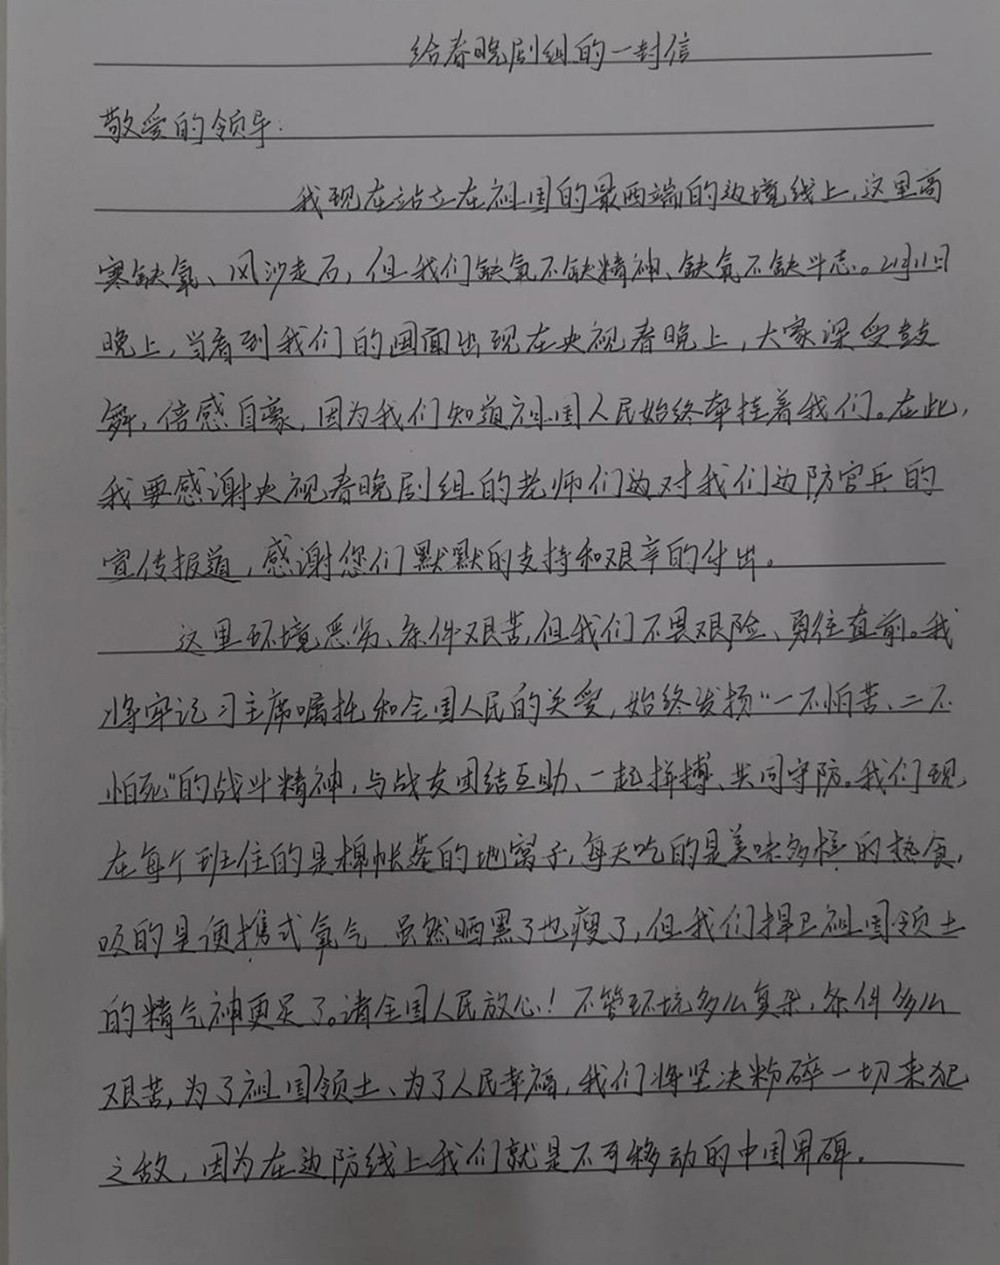 给春晚剧组的一封信
敬爱的领导:
我现在站立在祖国的最西端的边境线上,这里高
寒缺氧、风沙走石,但我们缺氧不缺精神、缺氧不缺斗志。2月11日
晚上,当看到我们的画面出现在央视春晚上,大家深受鼓
舞,倍感自豪,因为我们知道祖国人民始终牵挂着我们。在此,
我要感谢央视春晚剧组的老师们对我们边防官兵的
宣传报道,感谢您们默默的支持和艰辛的付出。
这里环境恶劣、条件艰苦,但我们不畏艰险、勇往直前。我
将牢记习主席嘱托和全国人民的关爱,始终发扬“一不怕苦、二不
怕死”的战斗精神,与战友团结互助、一起拼搏、共同守防。我们现
在每个班住的是棉帐篷的地窝子,每天吃的是美味多样的热食,
吸的是便携式氧气 虽然晒黑了也瘦了,但我们捍卫祖国领土
的精气神更足了。请全国人民放心!不管环境多么复杂,条件多么
艰苦,为了祖国领土、为了人民幸福,我们将坚决粉碎一切来犯
之敌,因为在边防线上我们就是不可移动的中国界碑。